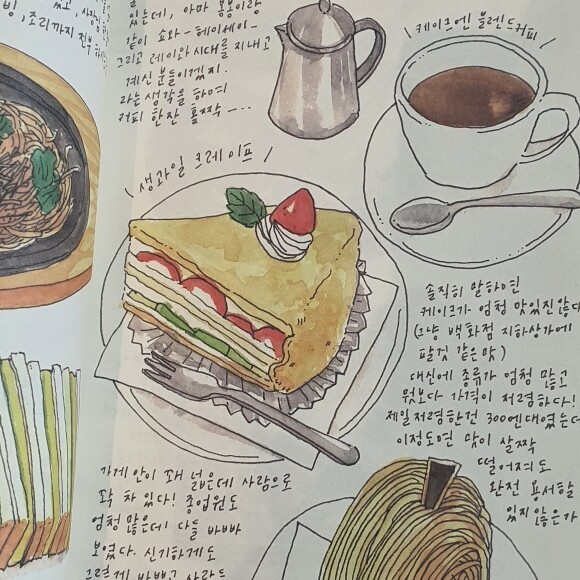 빙, 조리까지 전부
있는데, 아마 봉봉이랑
같이 쇼와-헤이세이-
그리고 레이와 시대를 지내고
계신 분들이겠지.
라는 생각을 하며
커피 한잔 홀짝---
케이크엔 블렌드커피
생과일 크레이프
솔직히 말하면
케이크가 엄청 맛있진 않다
(그냥 백화점 지하상가에
팔 것 같은 맛)
대신에 종류가 엄청 많고
뭣보다 가격이 저렴하다!
제일 저렴한건 300엔대였는데
이정도면 맛이 살짝
떨어져도
완전 용서할
있지 않은가
가게 안이 꽤 넓은데 사람으로
꽉 차 있다! 종업원도
엄청 많은데 다들 바빠
보였다. 신기하게도
그렇게 바쁘고 사람도